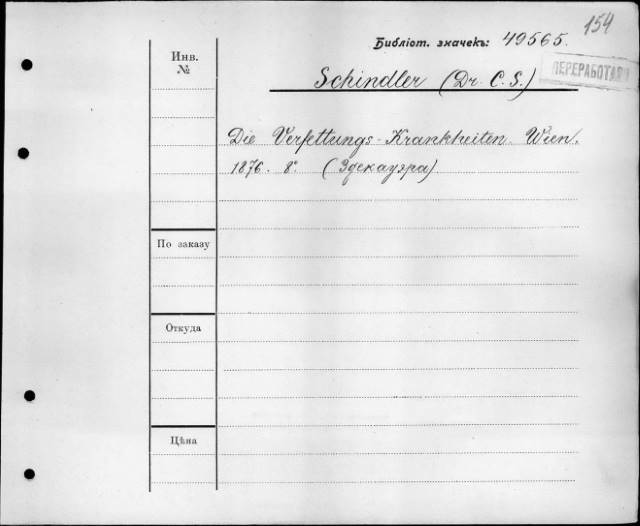 154
Библіот. значекъ: 49565.
ПЕРЕРАБОТАН
Инв. №
Schindler (Dr. C. S.)
Die Verfettungs-Krankheiten. Wien.
1876. 8°. (Эдекауэра)
По заказу
Откуда
Цѣна